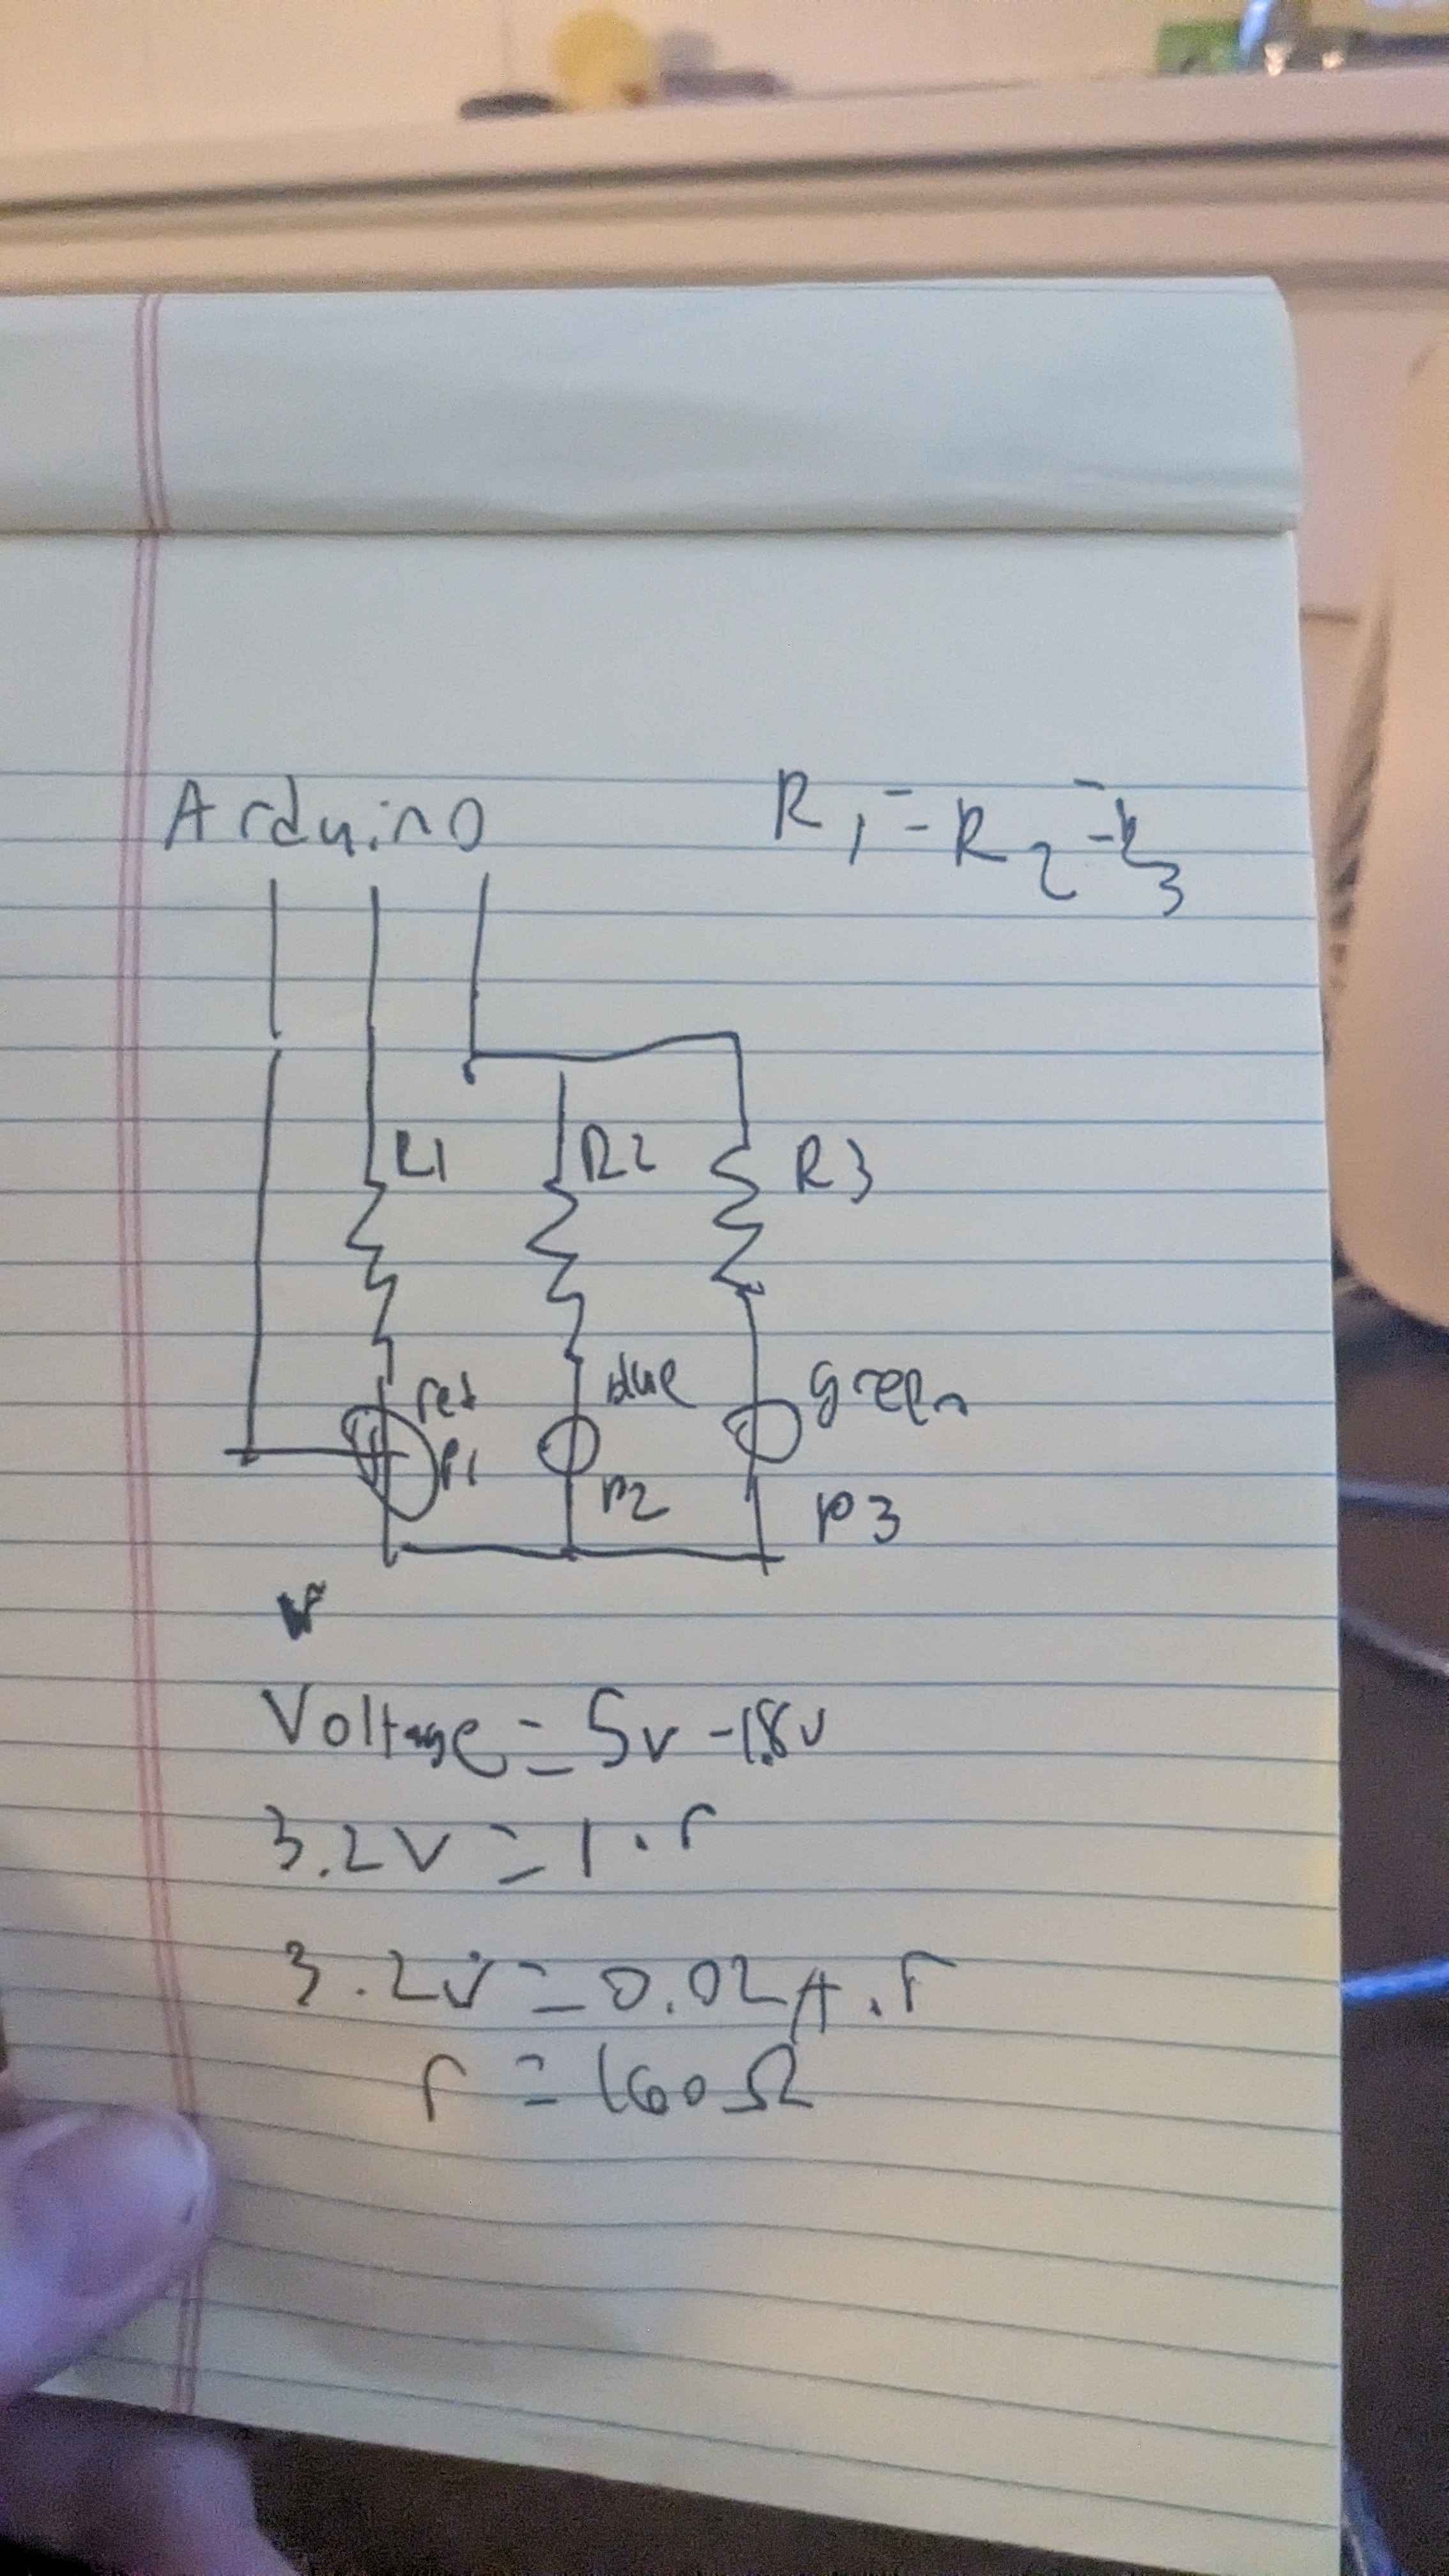 Arduino
R1 = R2 = R3
R1
R2
R3
red
blue
green
P1
P2
P3
Voltage = 5v - 1.8v
3.2v = I · r
3.2v = 0.02A · r
r = 160Ω